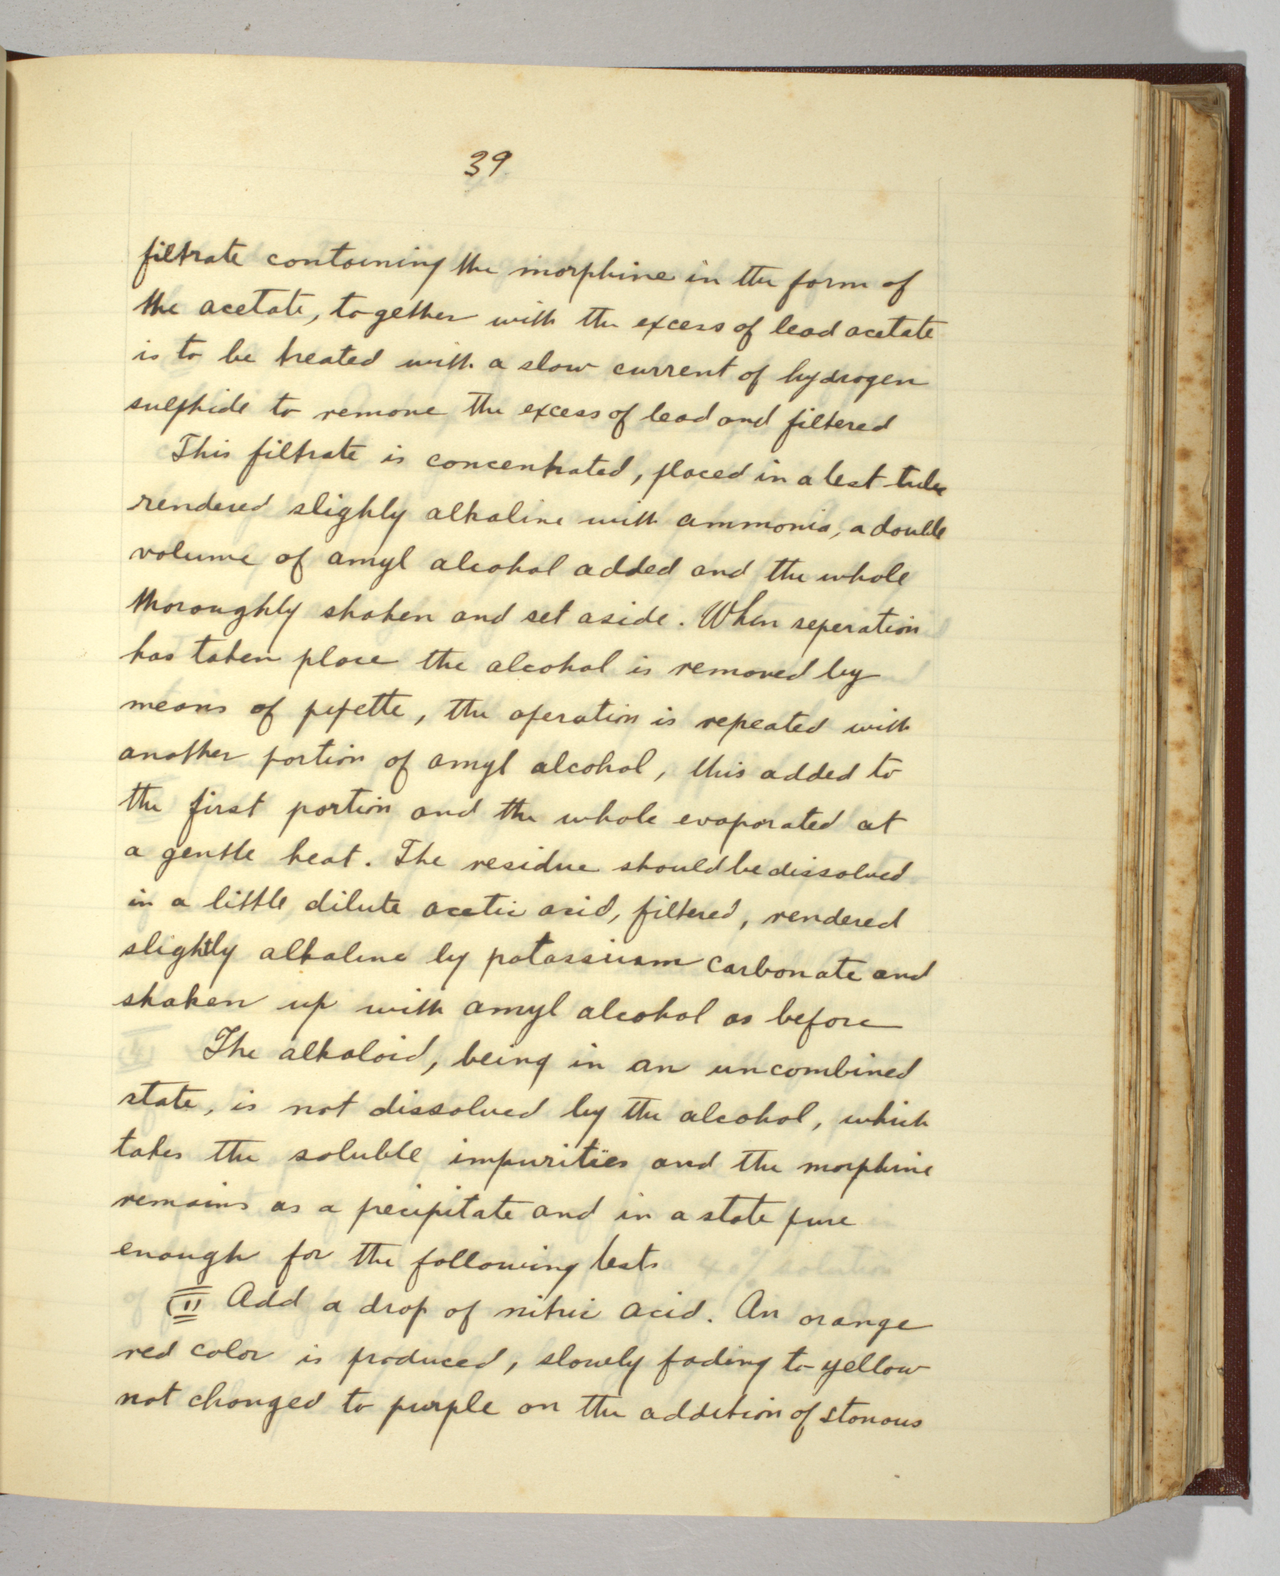 39
filtrate containing the morphine in the form of
the acetate, together with the excess of lead acetate
is to be treated with a slow current of hydrogen
sulphide to remove the excess of lead and filtered
This filtrate is concentrated, placed in a test tube
rendered slighly alkaline with ammonia, a double
volume of amyl alcohol added and the whole
thoroughly shaken and set aside. When seperation
has taken place the alcohol is removed by
means of pipette, the operation is repeated with
another portion of amyl alcohol, this added to
the first portion and the whole evaporated at
a gentle heat. The residue should be dissolved
in a little dilute acetic acid, filtered, rendered
slightly alkaline by potassium carbonate and
shaken up with amyl alcohol as before
The alkaloid, being in an uncombined
state, is not dissolved by the alcohol, which
takes the soluble impurities and the morphine
remains as a precipitate and in a state pure
enough for the following tests
(II Add a drop of nitric acid. An orange
red color is produced, slowly fading to yellow
not changed to purple on the addition of stonous